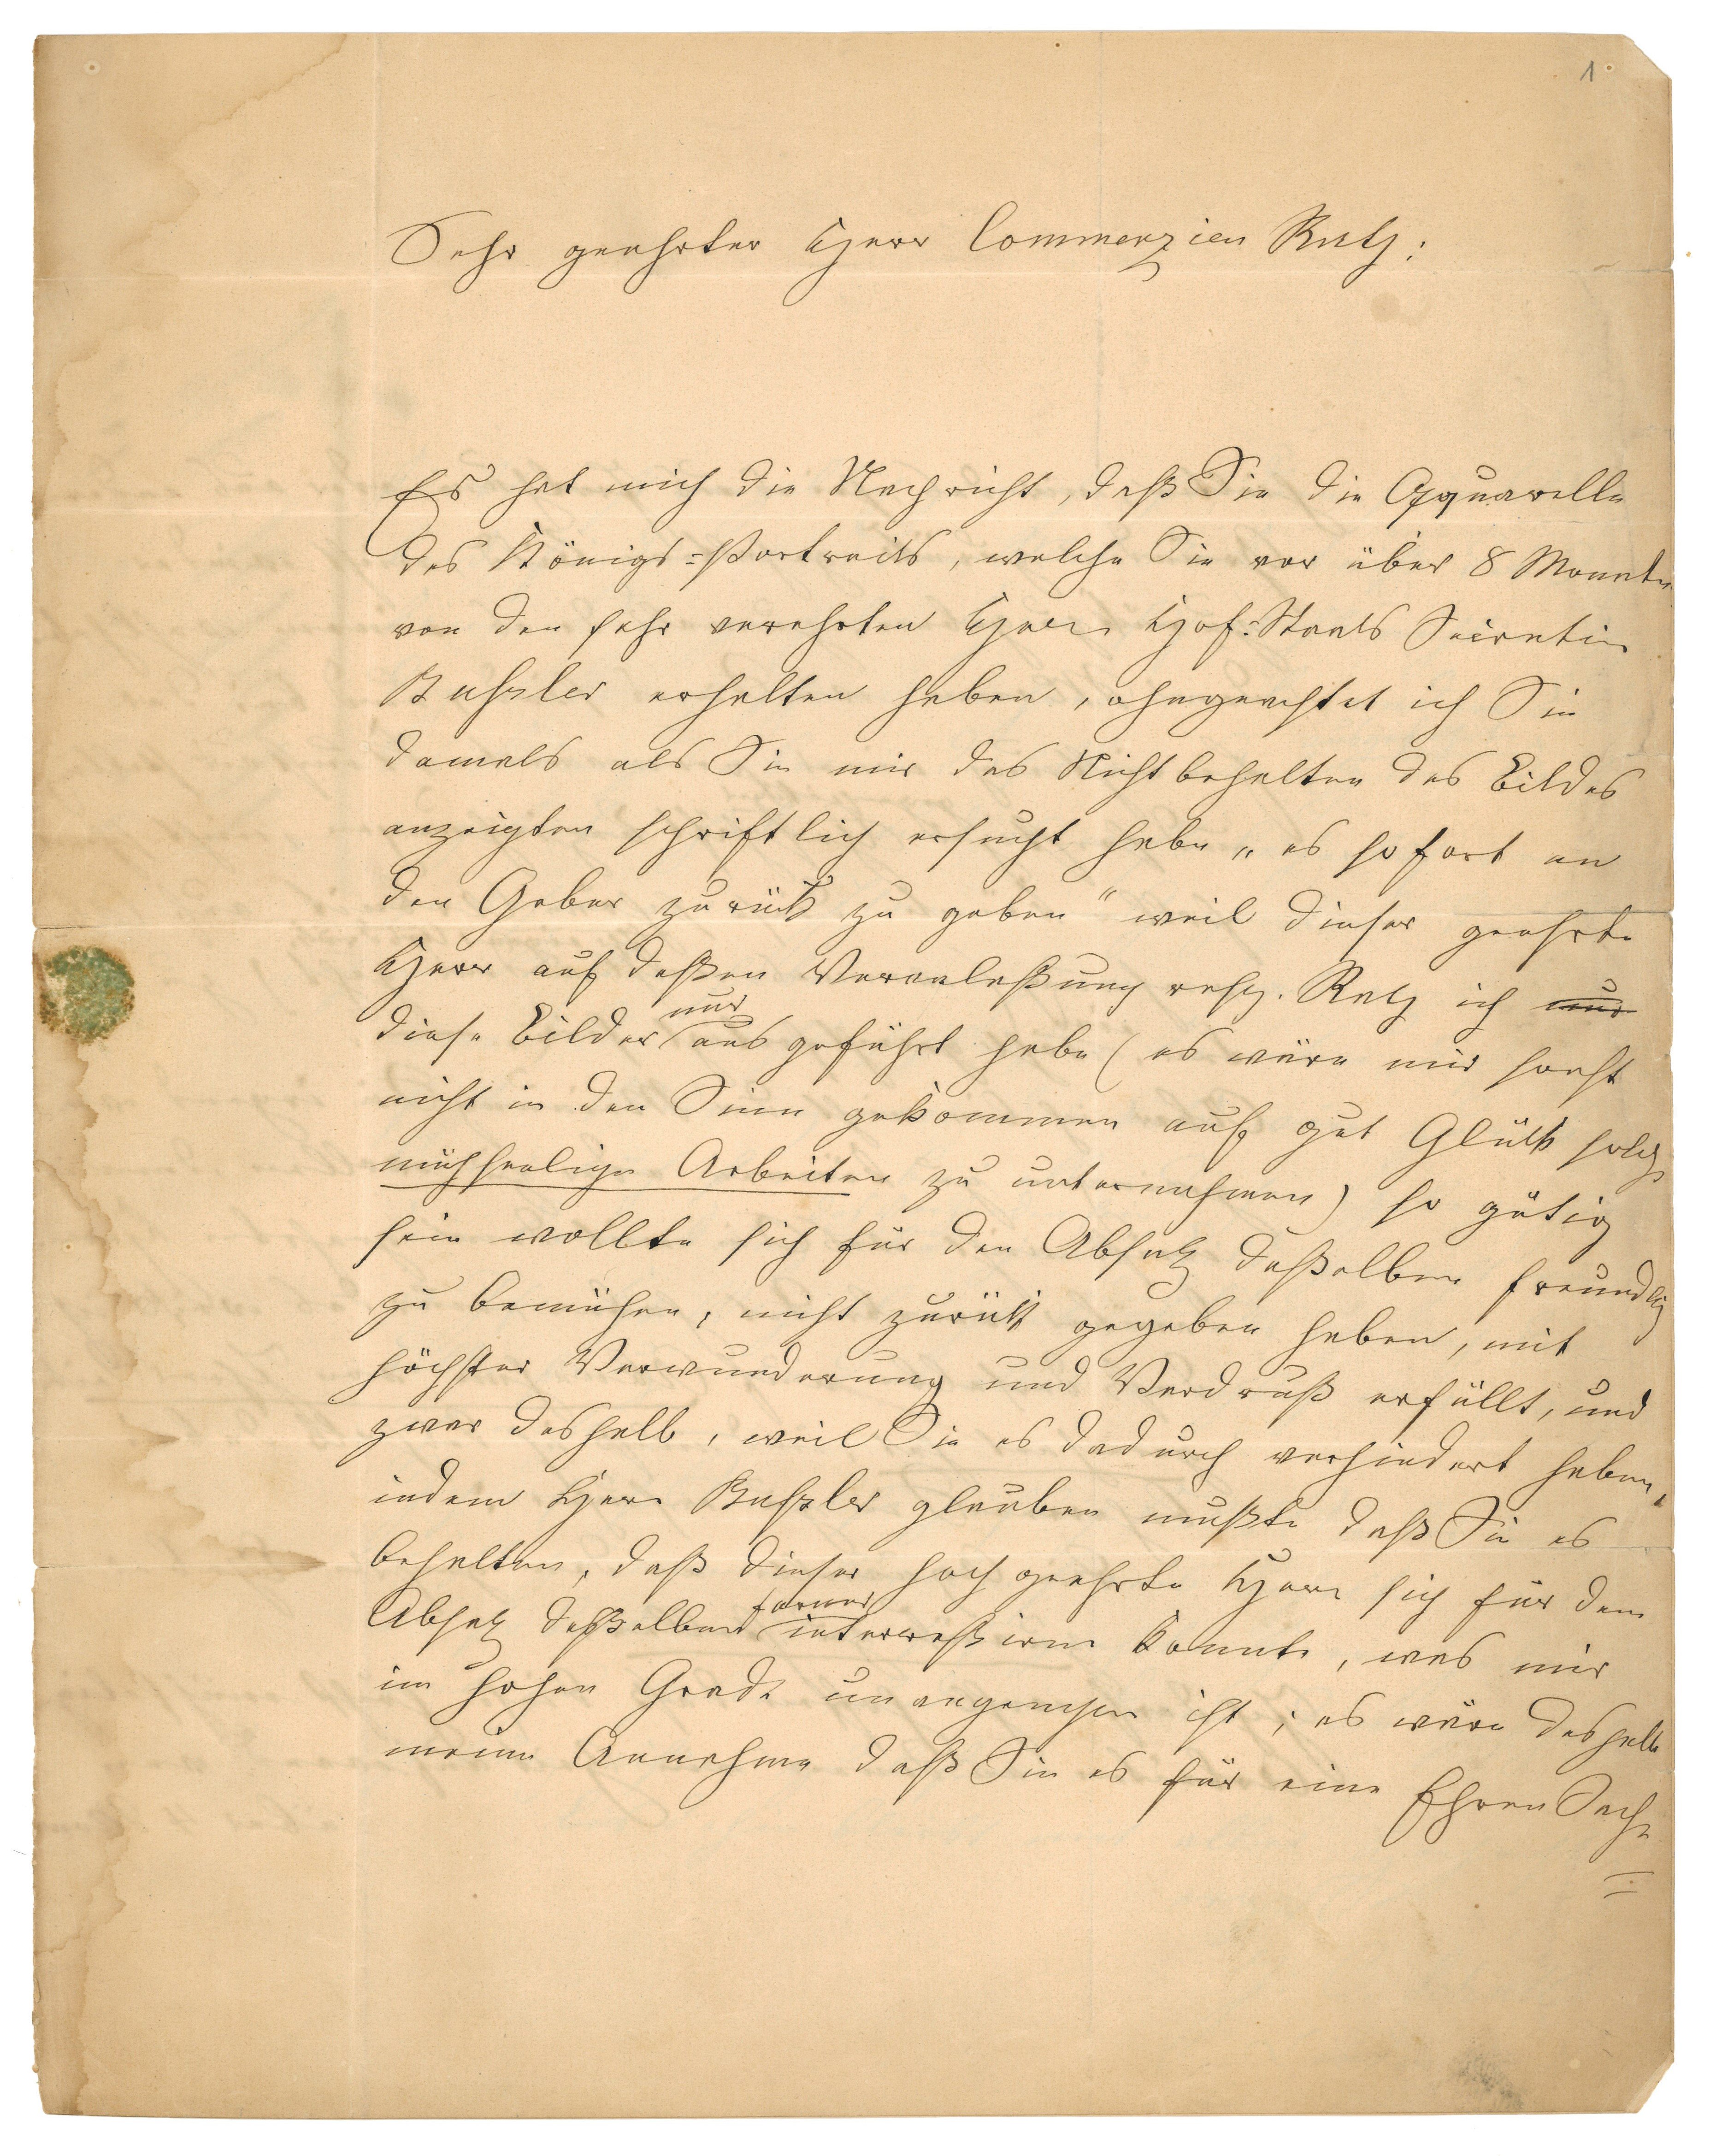 1
Sehr geehrter Herr Commerzien Rath!
Es hat mich die Nachricht, daß Sie die Aquarelle
des Königs=Portraits, welche Sie vor über 8 Monaten
von den sehr verehrten Herrn Hof=Staats Secretär
Bußler erhalten haben, ohngeachtet ich Sie
damals als Sie mir das Nichtbehalten des Bildes
anzeigten schriftlich ersucht habe „es sofort an
den Geber zurück zu geben“ weil dieser geehrte
Herr auf deßen Veranlaßung resp. Rath ich nur
diese Bilder nur ausgeführt habe (es wäre mir sonst
nicht in den Sinn gekommen auf gut Glück solch
mühseelige Arbeiten zu unternehmen) so gütig
sein wollte sich für den Absatz deßelben freundlich
zu bemühen, nicht zurück gegeben haben, mit
höchster Verwunderung und Verdruß erfüllt, und
zwar deshalb, weil Sie es dadurch verhindert haben,
indem Herr Bußler glauben mußte daß Sie es
behalten, daß dieser hochgeehrte Herr sich für den
Absatz deßelben ferner intereßiren konnte, was mir
im hohen Grade unangenehm ist; es wäre deshalb
meine Annahme daß Sie es für eine Ehren Sache